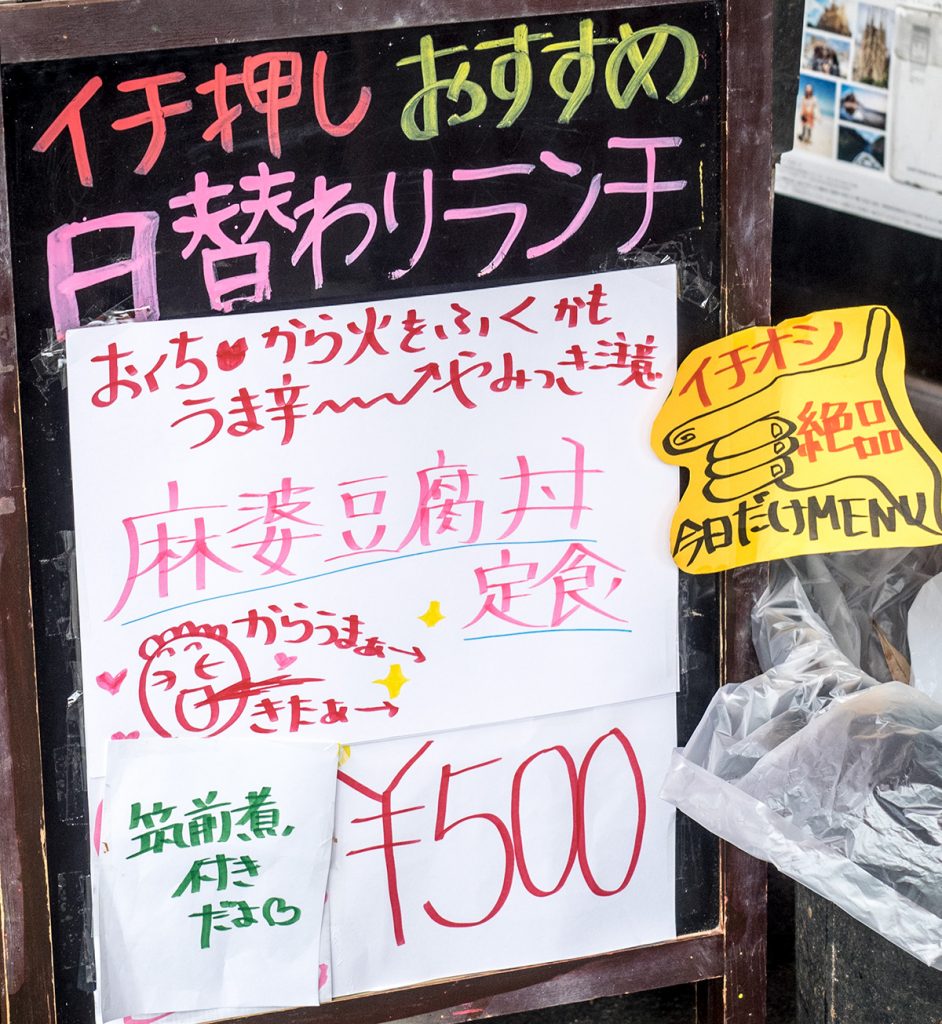 イチ押し おすすめ
日替わりランチ
おくち♥から火をふくかも
うま辛〜〜↗やみつき注意
麻婆豆腐丼
定食
からうまぁ→
きたぁー→
イチオシ
絶品
今日だけMENU
筑前煮
付き
だよ♡
¥500